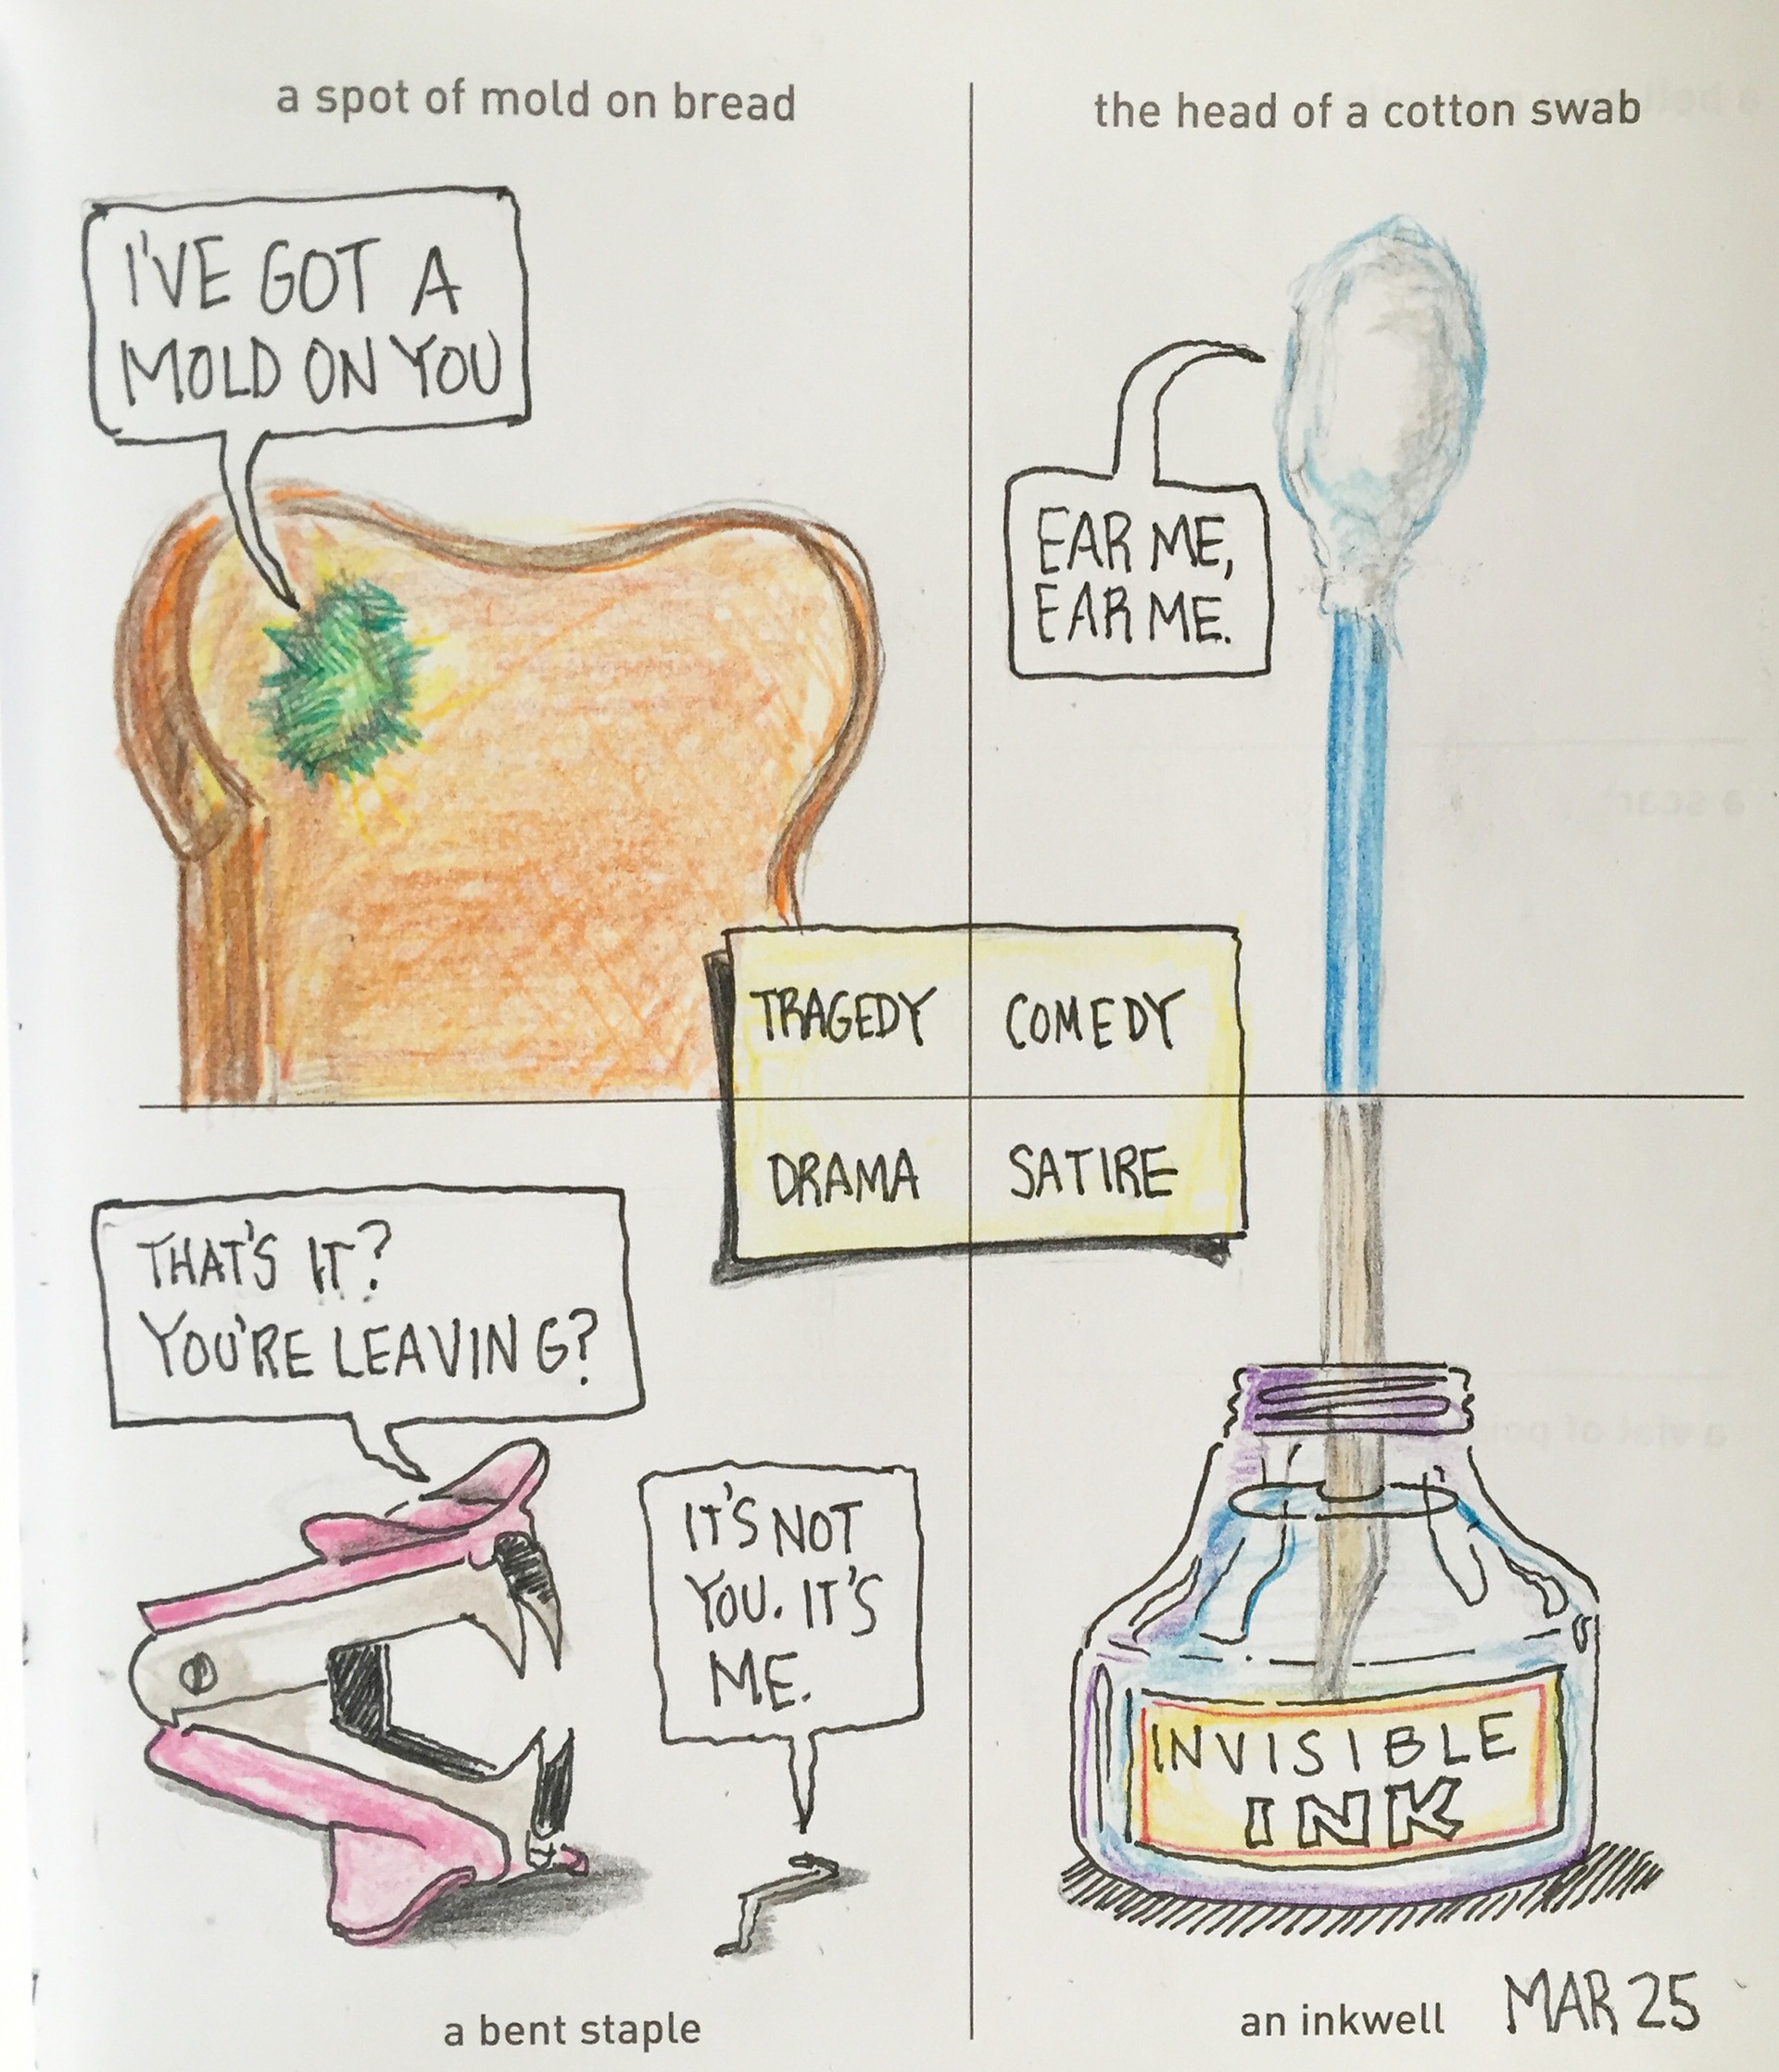 a spot of mold on bread
the head of a cotton swab
I'VE GOT A
MOLD ON YOU
EAR ME,
EAR ME.
TRAGEDY
COMEDY
DRAMA
SATIRE
THAT'S IT?
YOU'RE LEAVING?
IT'S NOT
YOU. IT'S
ME.
INVISIBLE
INK
a bent staple
an inkwell
MAR 25